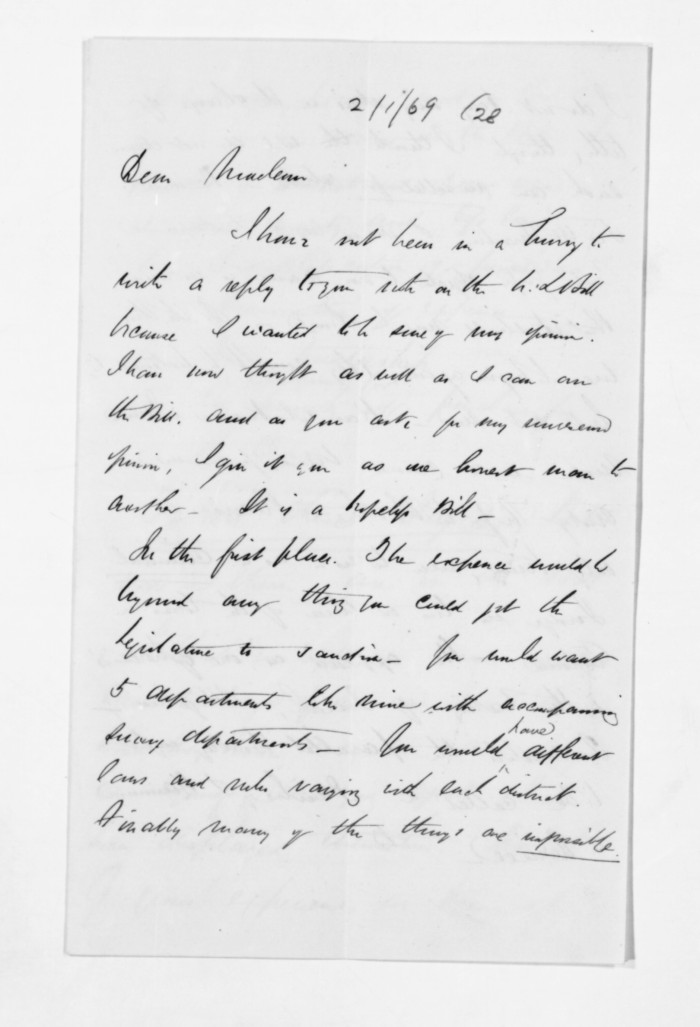 2/1/69 (28
Dear Maclean
I have not been in a hurry to
write a reply to your note on the N.L Bill
because I wanted to be sure of my opinion.
I have now thought as well as I can over
the Bill. and as you ask for my unreserved
opinion, I give it you as one honest man to
another - It is a hopeless Bill -
In the first place. The expence would be
beyond any thing you could get the
Legislature to sanction - You would want
5 departments like mine with accompanying
survey departments - You would have different
laws and rules varying with each district.
Finally many of the things are impossible.